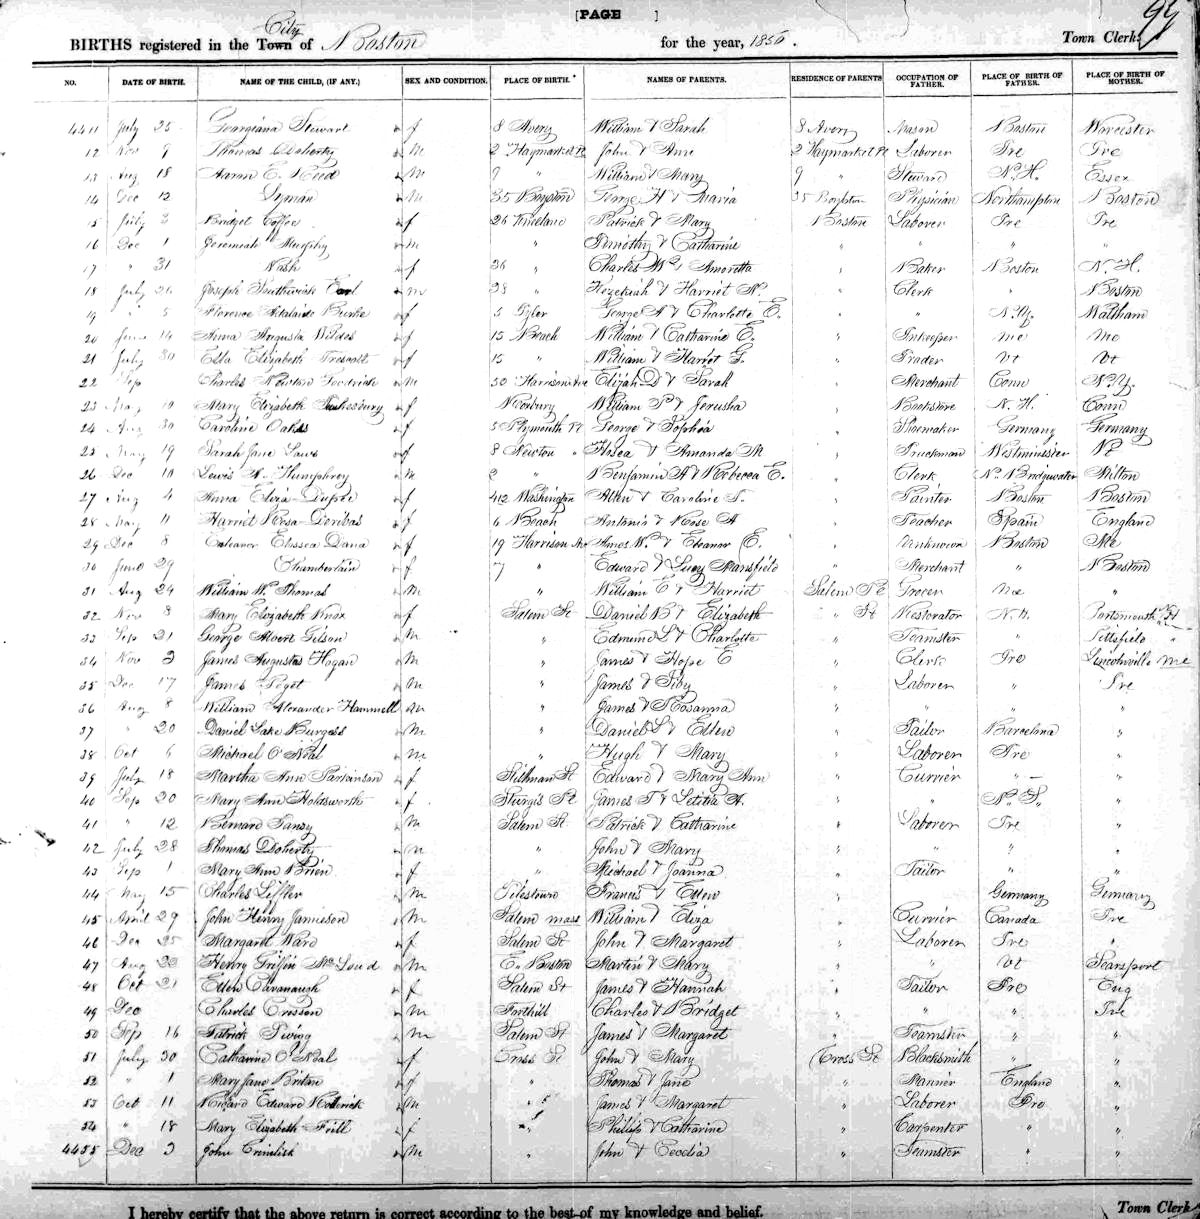 [PAGE ]
99
City
BIRTHS registered in the Town of Boston for the year, 1850. Town Clerk.
NO. DATE OF BIRTH. NAME OF THE CHILD, (IF ANY.) SEX AND CONDITION. PLACE OF BIRTH. NAMES OF PARENTS. RESIDENCE OF PARENTS OCCUPATION OF FATHER. PLACE OF BIRTH OF FATHER. PLACE OF BIRTH OF MOTHER.
4411 July 25 Georgiana Stewart f 8 Avery William & Sarah 8 Avery Mason Boston Worcester
12 Nov 9 Thomas Doherty m 2 Haymarket Pl John & Ann 2 Haymarket Pl Laborer Ire Ire
13 Aug 18 Aaron E. Reed m 9 " William & Mary 9 " Steward N.H. Essex
14 Dec 12 Lyman m 35 Boylston George H & Maria 35 Boylston Physician Northampton Boston
15 July 2 Bridget Coffee f 26 Kneeland Patrick & Mary Boston Laborer Ire Ire
16 Dec 1 Jeremiah Murphy m " Timothy & Catharine " " " "
17 " 31 Nash f 36 " Charles W & Amoretta " Baker Boston N.H.
18 July 26 Joseph Southwick Earl m 28 " Hezekiah & Harriet N. " Clerk " Boston
19 " 5 Florence Adelaide Burke f 5 Tyler George A & Charlotte E. " " N.Y. Waltham
20 June 14 Anna Augusta Wildes f 15 Beach William & Catharine E. " Inkeeper Me Me
21 July 30 Ella Elizabeth Trescott f 15 " William & Harriet G. " Trader Vt Vt
22 Sep Charles Newton Goodrich m 50 Harrison Ave Elijah D & Sarah " Merchant Conn N.Y.
23 May 19 Mary Elizabeth Tukesbury f Roxbury William P & Jerusha " Bookstore N.H. Conn
24 Aug 30 Caroline Oakes f 5 Plymouth Pl George & Sophia " Shoemaker Germany Germany
25 May 19 Sarah Jane Laws f 8 Newton " Hosea & Amanda M " Truckman Westminster
26 Dec 10 Lewis N. Humphrey m " Benjamin A & Rebecca E. " Clerk N. Bridgwater Milton
27 Aug 4 Anna Eliza Dupee f 412 Washington Allen & Caroline S. " Painter Boston Boston
28 May 11 Harriet Rosa Deribas f 6 Beach Antonio & Rose A " Teacher Spain England
29 Dec 8 Eeleanor Elissea Dana f 19 Harrison Ave Amos W. & Eleanor E. " Unknown Boston Me
30 June 29 Chamberlain f 7 " Edward & Lucy Mansfield " Merchant " Boston
31 Aug 24 William W. Thomas m " William E & Harriet Salem Pl Grocer Me "
32 Nov 8 Mary Elizabeth Knox f Salem St Daniel B & Elizabeth " St Restorator N.H. Portsmouth N.H
33 Sep 21 George Albert Gilson m " Edmund S & Charlotte " Teamster " Pittsfield "
34 Nov 3 James Augustus Hogan m " James & Hope E " Clerk Ire Lincolnville Me
35 Dec 17 James Peget m " James & Biby " Laborer " Ire
36 Aug 8 William Alexander Hammell m " James & Rosanna " " " "
37 " 20 Daniel Lake Burgess m " Daniel L & Ellen " Tailor Barcelona "
38 Oct 6 Michael O'Neal m " Hugh & Mary " Laborer Ire "
39 July 18 Martha Ann Parkinson f Stillman St Edward & Mary Ann " Currier " "
40 Sep 20 Mary Ann Holdsworth f Sturgis Pl James T & Letitia A. " " N.S. "
41 " 12 Bernard Tansy m Salem St Patrick & Catharine " Laborer Ire "
42 July 28 Thomas Doherty m " John & Mary " " " "
43 Sep 1 Mary Ann Brien f " Michael & Joanna " Tailor " "
44 May 15 Charles Leffler m Tileston Francis & Ellen " Germany Germany
45 April 29 John Henry Jamieson m Salem mass William & Eliza " Currier Canada Ire
46 Dec 25 Margaret Ward f Salem St John & Margaret " Laborer Ire "
47 Aug 22 Henry Griffin McLoud m E. Boston Martin & Mary " " Vt Searsport
48 Oct 21 Ellen Cavanaugh f Salem St James & Hannah " Tailor Ire Eng
49 Dec Charles Crosson m Forthill Charles & Bridget " " " Ire
50 Sep 16 Patrick Twigg m Salem St James & Margaret " Teamster " "
51 July 30 Catharine O'Neal f Cross St John & Mary Cross St Blacksmith " "
52 " 1 Mary Jane Briton f " Thomas & Jane " Manner England "
53 Oct 11 Richard Edward Roderick m " James & Margaret " Laborer Ire "
54 " 18 Mary Elizabeth Frill f " Phillip & Catharine " Carpenter " "
4455 Dec 3 John Crimlisk m " John & Cecelia " Teamster " "
I hereby certify that the above return is correct according to the best of my knowledge and belief. Town Clerk